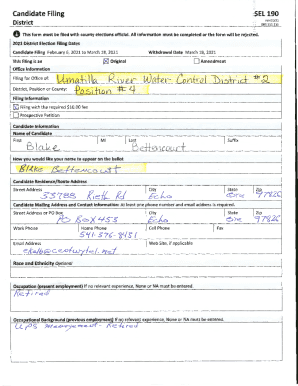 Candidate Filing
SEL 190
District
This form must be filed with county elections official. All information must be completed or the form will be rejected.
2021 District Election Filing Dates
Candidate Filing February 6, 2021 to March 18, 2021 Withdrawal Date March 18, 2021
This filing is an Original Amendment
Office Information
Filing for Office of: Umatilla River Water Control District #2
District, Position or County: Position #4
Filing Information
Filing with the required $10.00 fee
Prospective Petition
Candidate Information
Name of Candidate
First MI Last Suffix
Blake Bettencourt
How you would like your name to appear on the ballot
Blake Bettencourt
Candidate Residence/Route Address
Street Address City State Zip
33785 Rieth Rd Echo Ore 97826
Candidate Mailing Address and Contact Information At least one phone number and email address is required.
Street Address or PO Box City State Zip
PO Box 453 Echo Ore 97826
Work Phone Home Phone Cell Phone Fax
541-376-8431
Email Address Web Site, if applicable
Race and Ethnicity Optional
Occupation (present employment) If no relevant experience, None or NA must be entered.
Retired
Occupational Background (previous employment) If no relevant experience, None or NA must be entered.
UPS Management - Retired